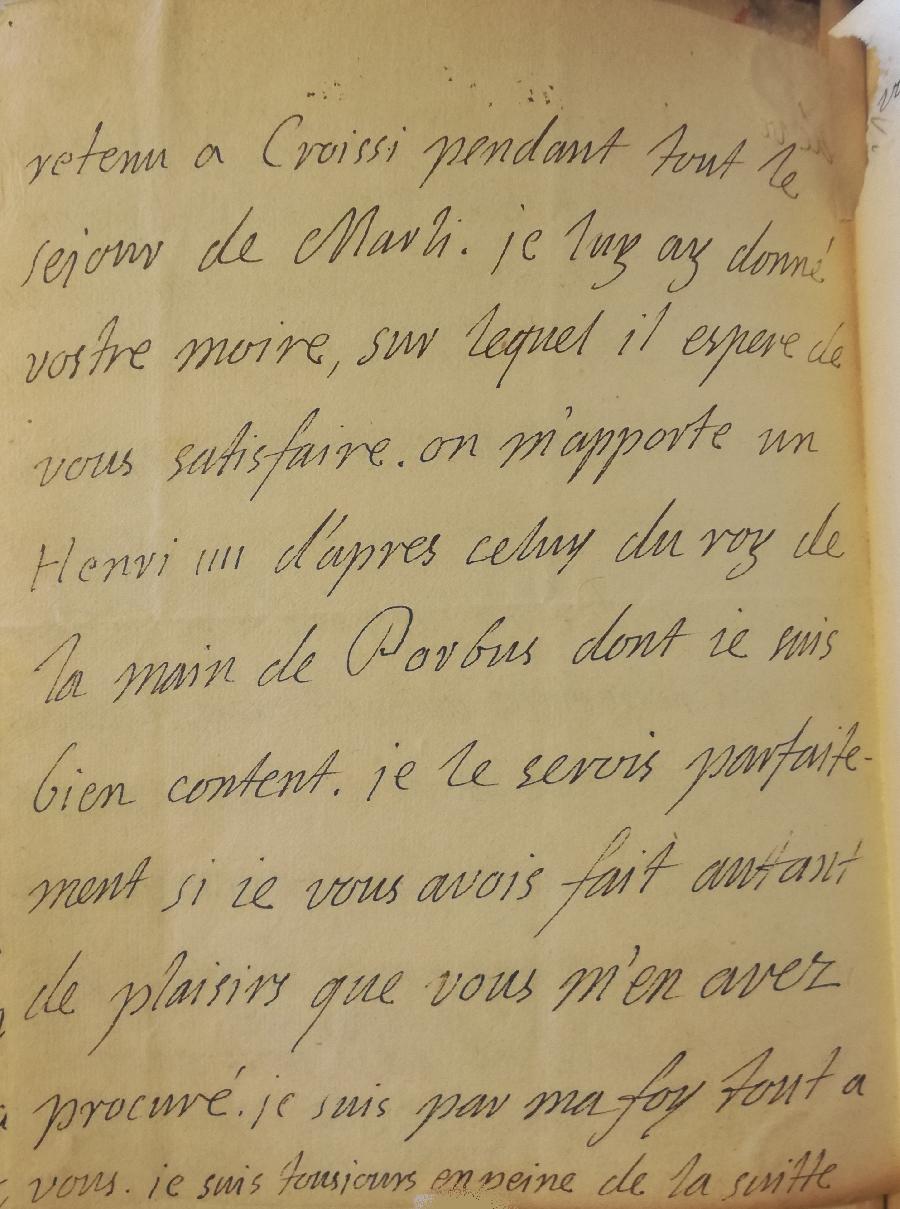 retenu a Croissi pendant tout le
sejour de Marli. je luy ay donné
vostre moire, sur lequel il espere de
vous satisfaire. on m'apporte un
Henri IIII d'apres celuy du roy de
la main de Porbus dont ie suis
bien content. je le serois parfaite-
ment si ie vous avois fait auttant
de plaisirs que vous m'en avez
procuré. je suis par ma foy tout a
vous. ie suis tousiours en peine de la suitte